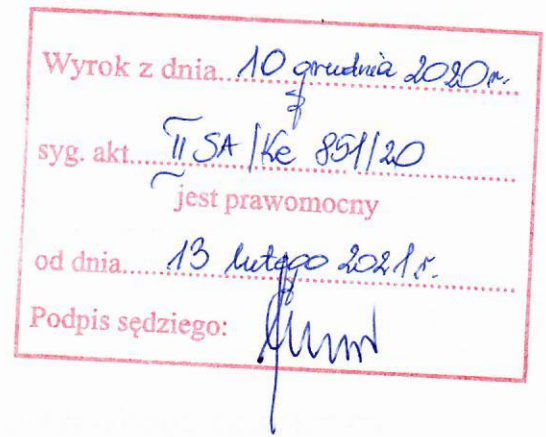 Wyrok z dnia 10 grudnia 2020r.
syg. akt II SA/Ke 851/20
jest prawomocny
od dnia 13 lutego 2021 r.
Podpis sędziego: